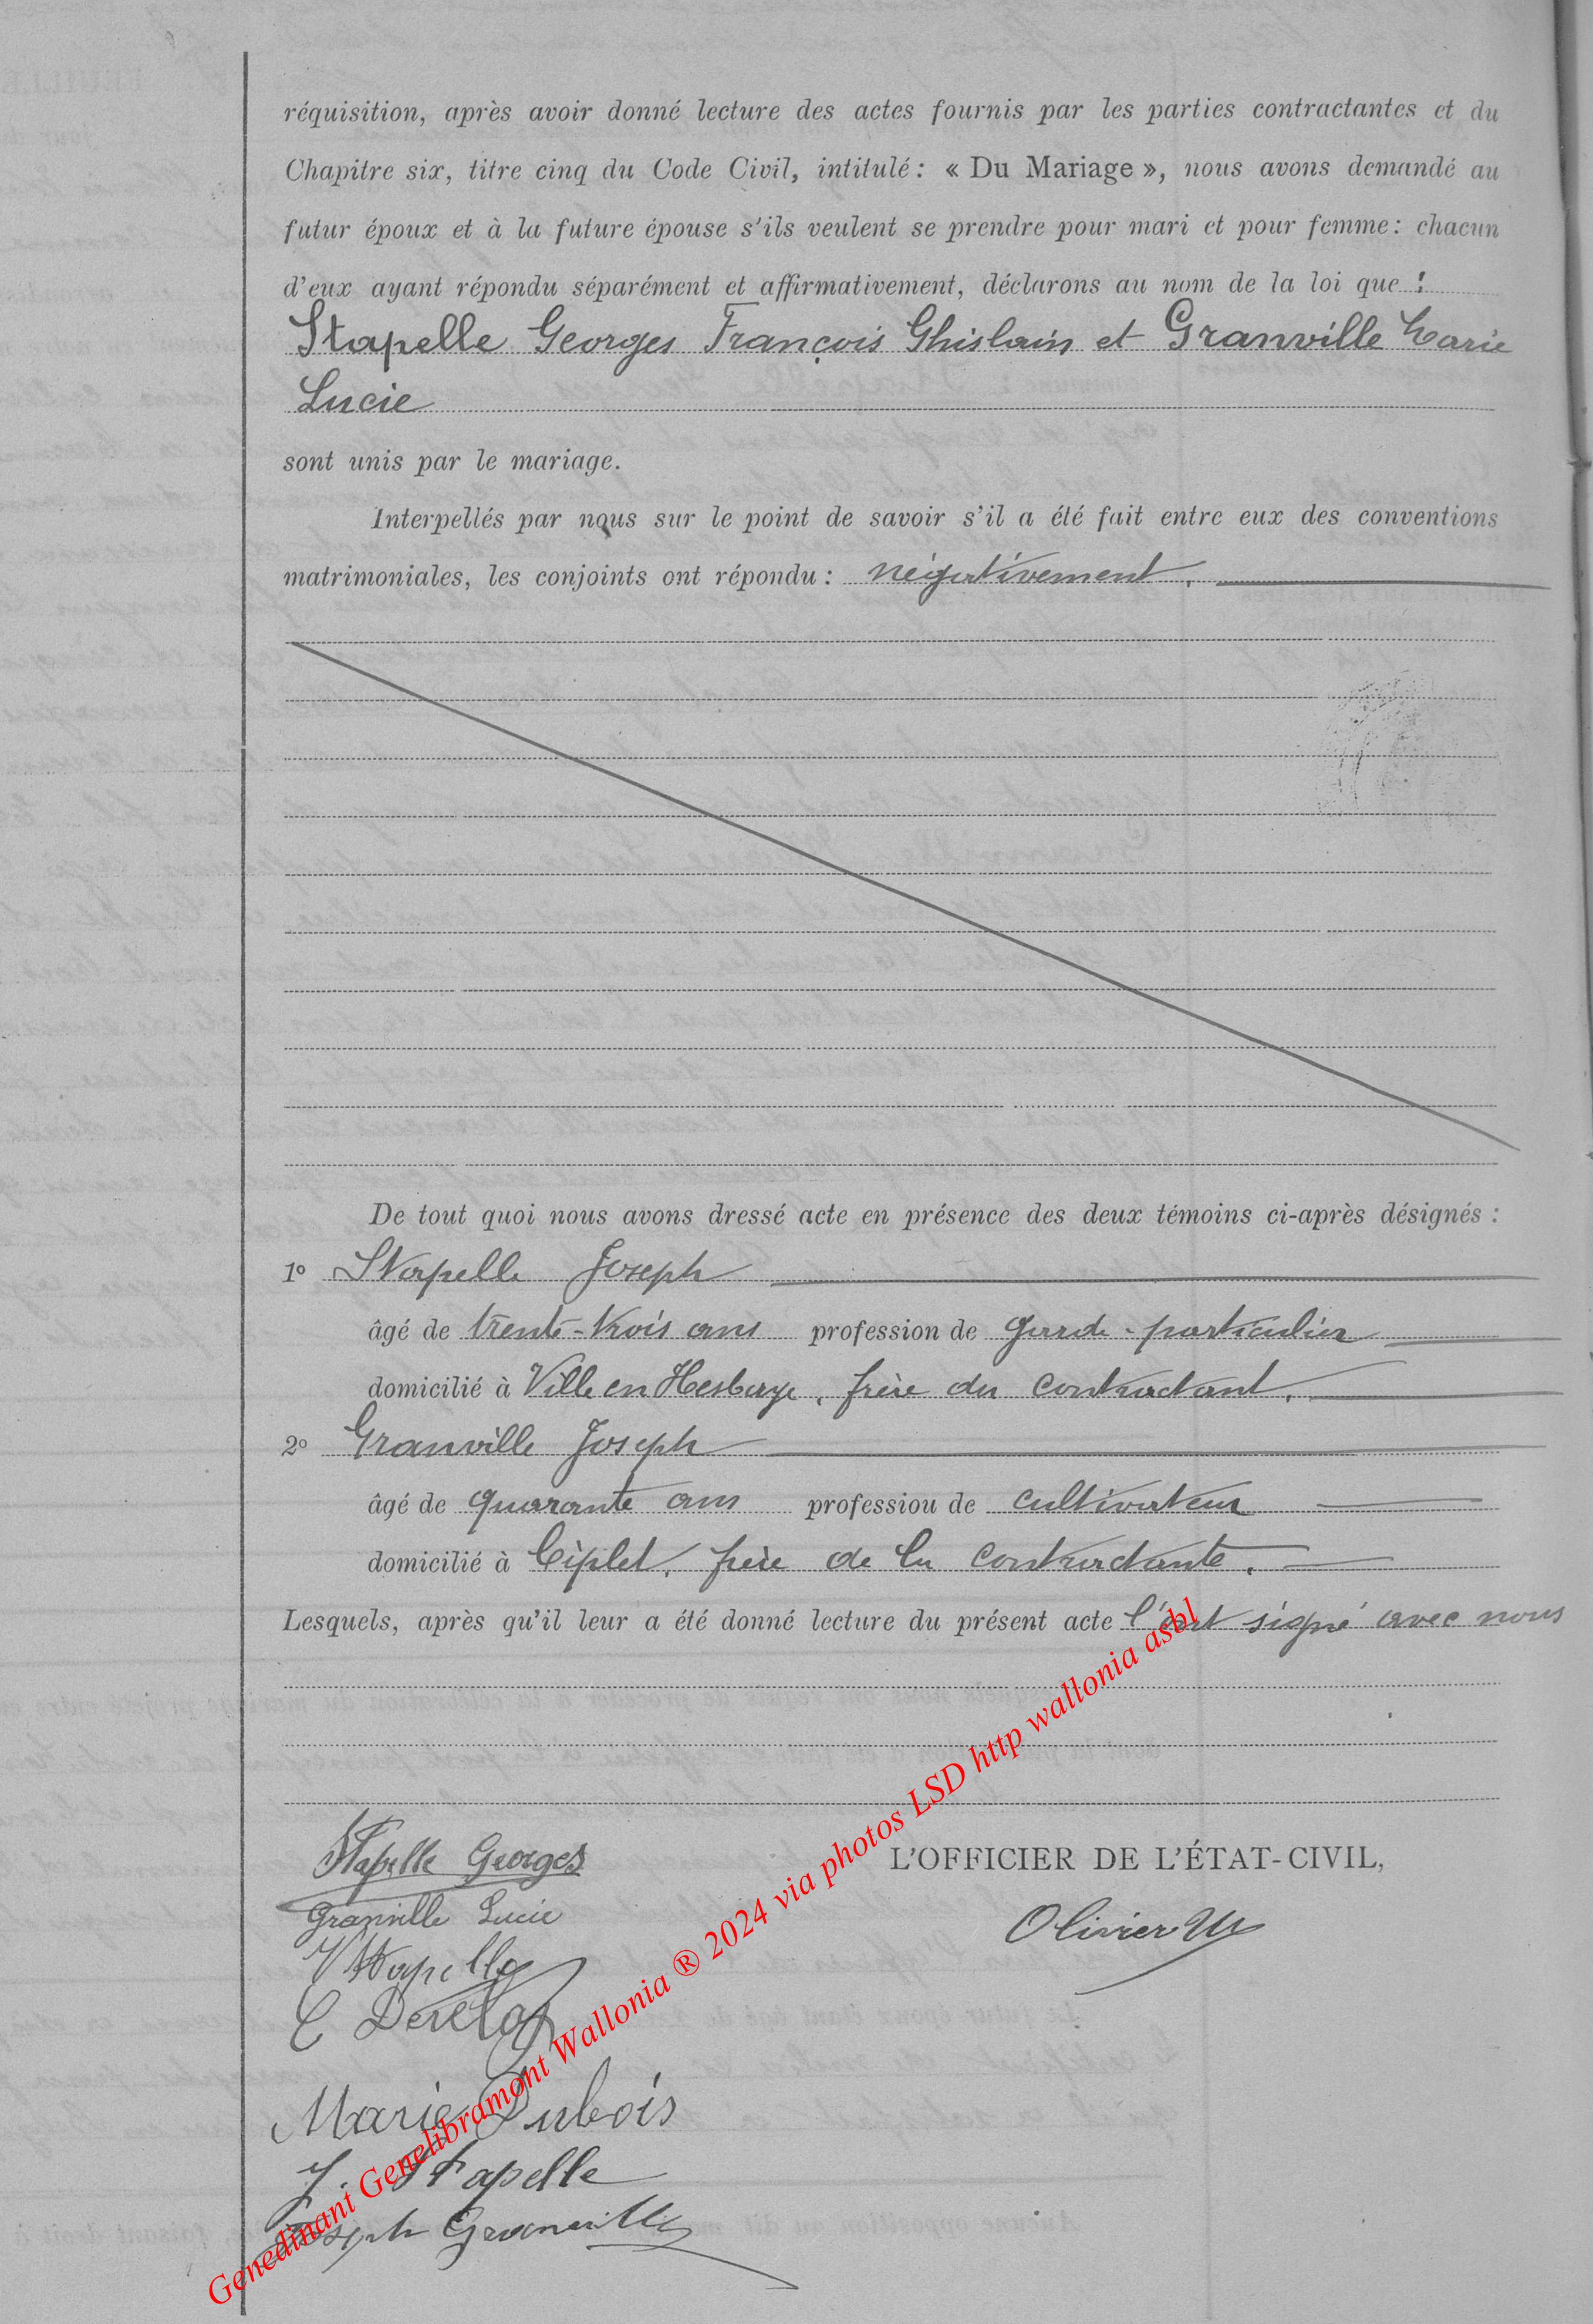 réquisition, après avoir donné lecture des actes fournis par les parties contractantes et du
Chapitre six, titre cinq du Code Civil, intitulé : « Du Mariage », nous avons demandé au
futur époux et à la future épouse s'ils veulent se prendre pour mari et pour femme : chacun
d'eux ayant répondu séparément et affirmativement, déclarons au nom de la loi que :
Stapelle Georges François Ghislain et Granville Marie
Lucie
sont unis par le mariage.
Interpellés par nous sur le point de savoir s'il a été fait entre eux des conventions
matrimoniales, les conjoints ont répondu : négativement.
De tout quoi nous avons dressé acte en présence des deux témoins ci-après désignés :
1° Stapelle Joseph
âgé de trente-trois ans profession de garde-particulier
domicilié à Ville en Hesbaye, frère du contractant.
2° Granville Joseph
âgé de quarante ans professiou de cultivateur
domicilié à Ciplet, frère de la contractante.
Lesquels, après qu'il leur a été donné lecture du présent acte l'ont signé avec nous
Stapelle Georges
L'OFFICIER DE L'ÉTAT-CIVIL,
Granville Lucie
Olivier
Stapelle
Marie Dubois
J. Stapelle
Joseph Granville
Genedinant Genelibramont Wallonia ® 2024 via photos LSD http wallonia asbl